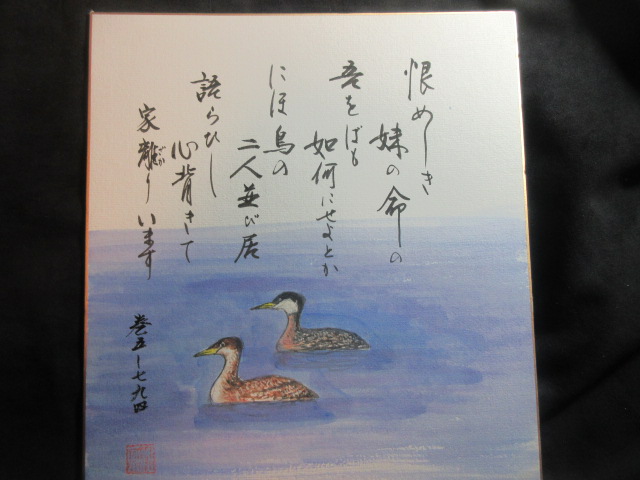 恨めしき
妹の命の
吾をばも
如何にせよとか
にほ鳥の
二人並び居
語らひし
心背きて
家離りいます
ざか
巻五ー七九四